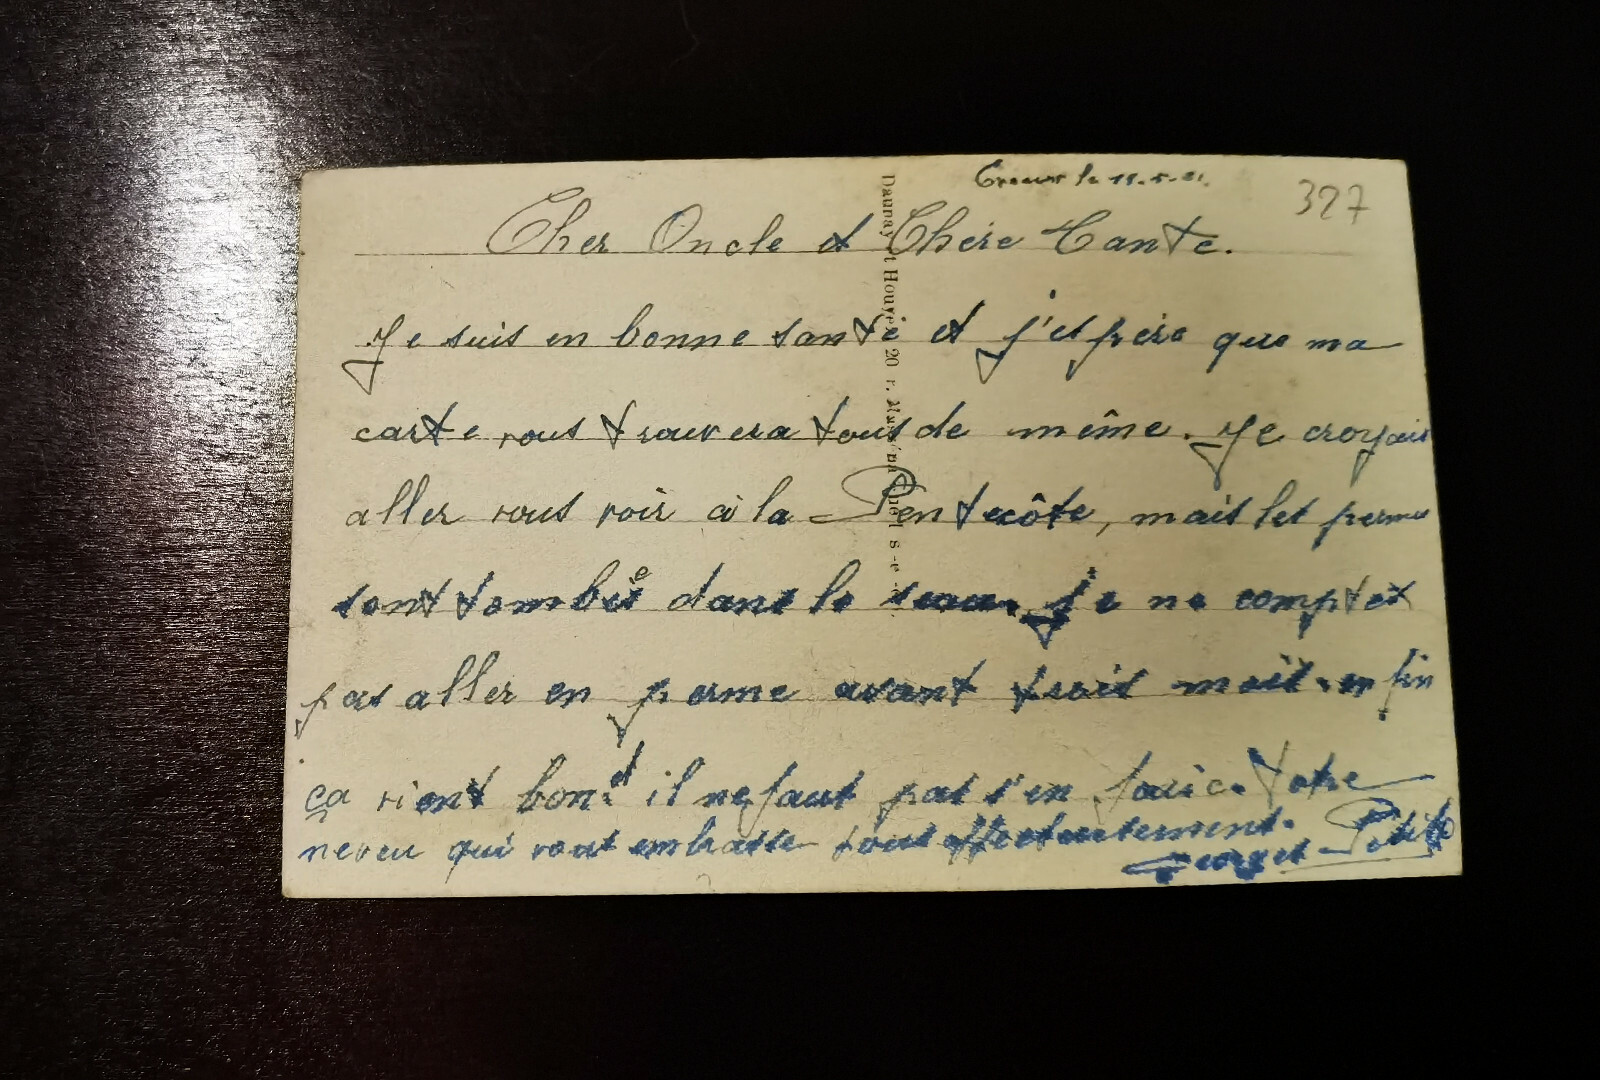 le 11-5-
327
Cher Oncle et Chère Tante.
Je suis en bonne santé et j'espère que ma
carte vous trouvera tous de même. Je croyais
aller vous voir à la Pentecôte, mais les perms
sont tombées dans le seau. je ne comptes
pas aller en perme avant trois mois. enfin
ça vient bon. et il ne faut pas s'en faire. Votre
neveu qui vous embrasse tous affectueusement.
Georges Petit
Daunay et Houve 20 r.